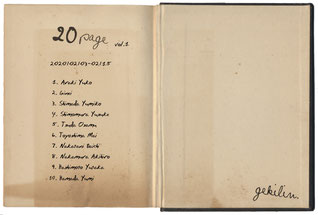 20 page vol.1
2020102103-02115
1. Araki Yuko
2. Ginei
3. Shimada Yumiko
4. Shimamura Yusuke
5. Tsuda Osamu
6. Toyoshima Mai
7. Nakatani Daichi
8. Nakamura Akihiro
9. Hashimoto Yutaka
10. Hamada Yumi
gekilin.